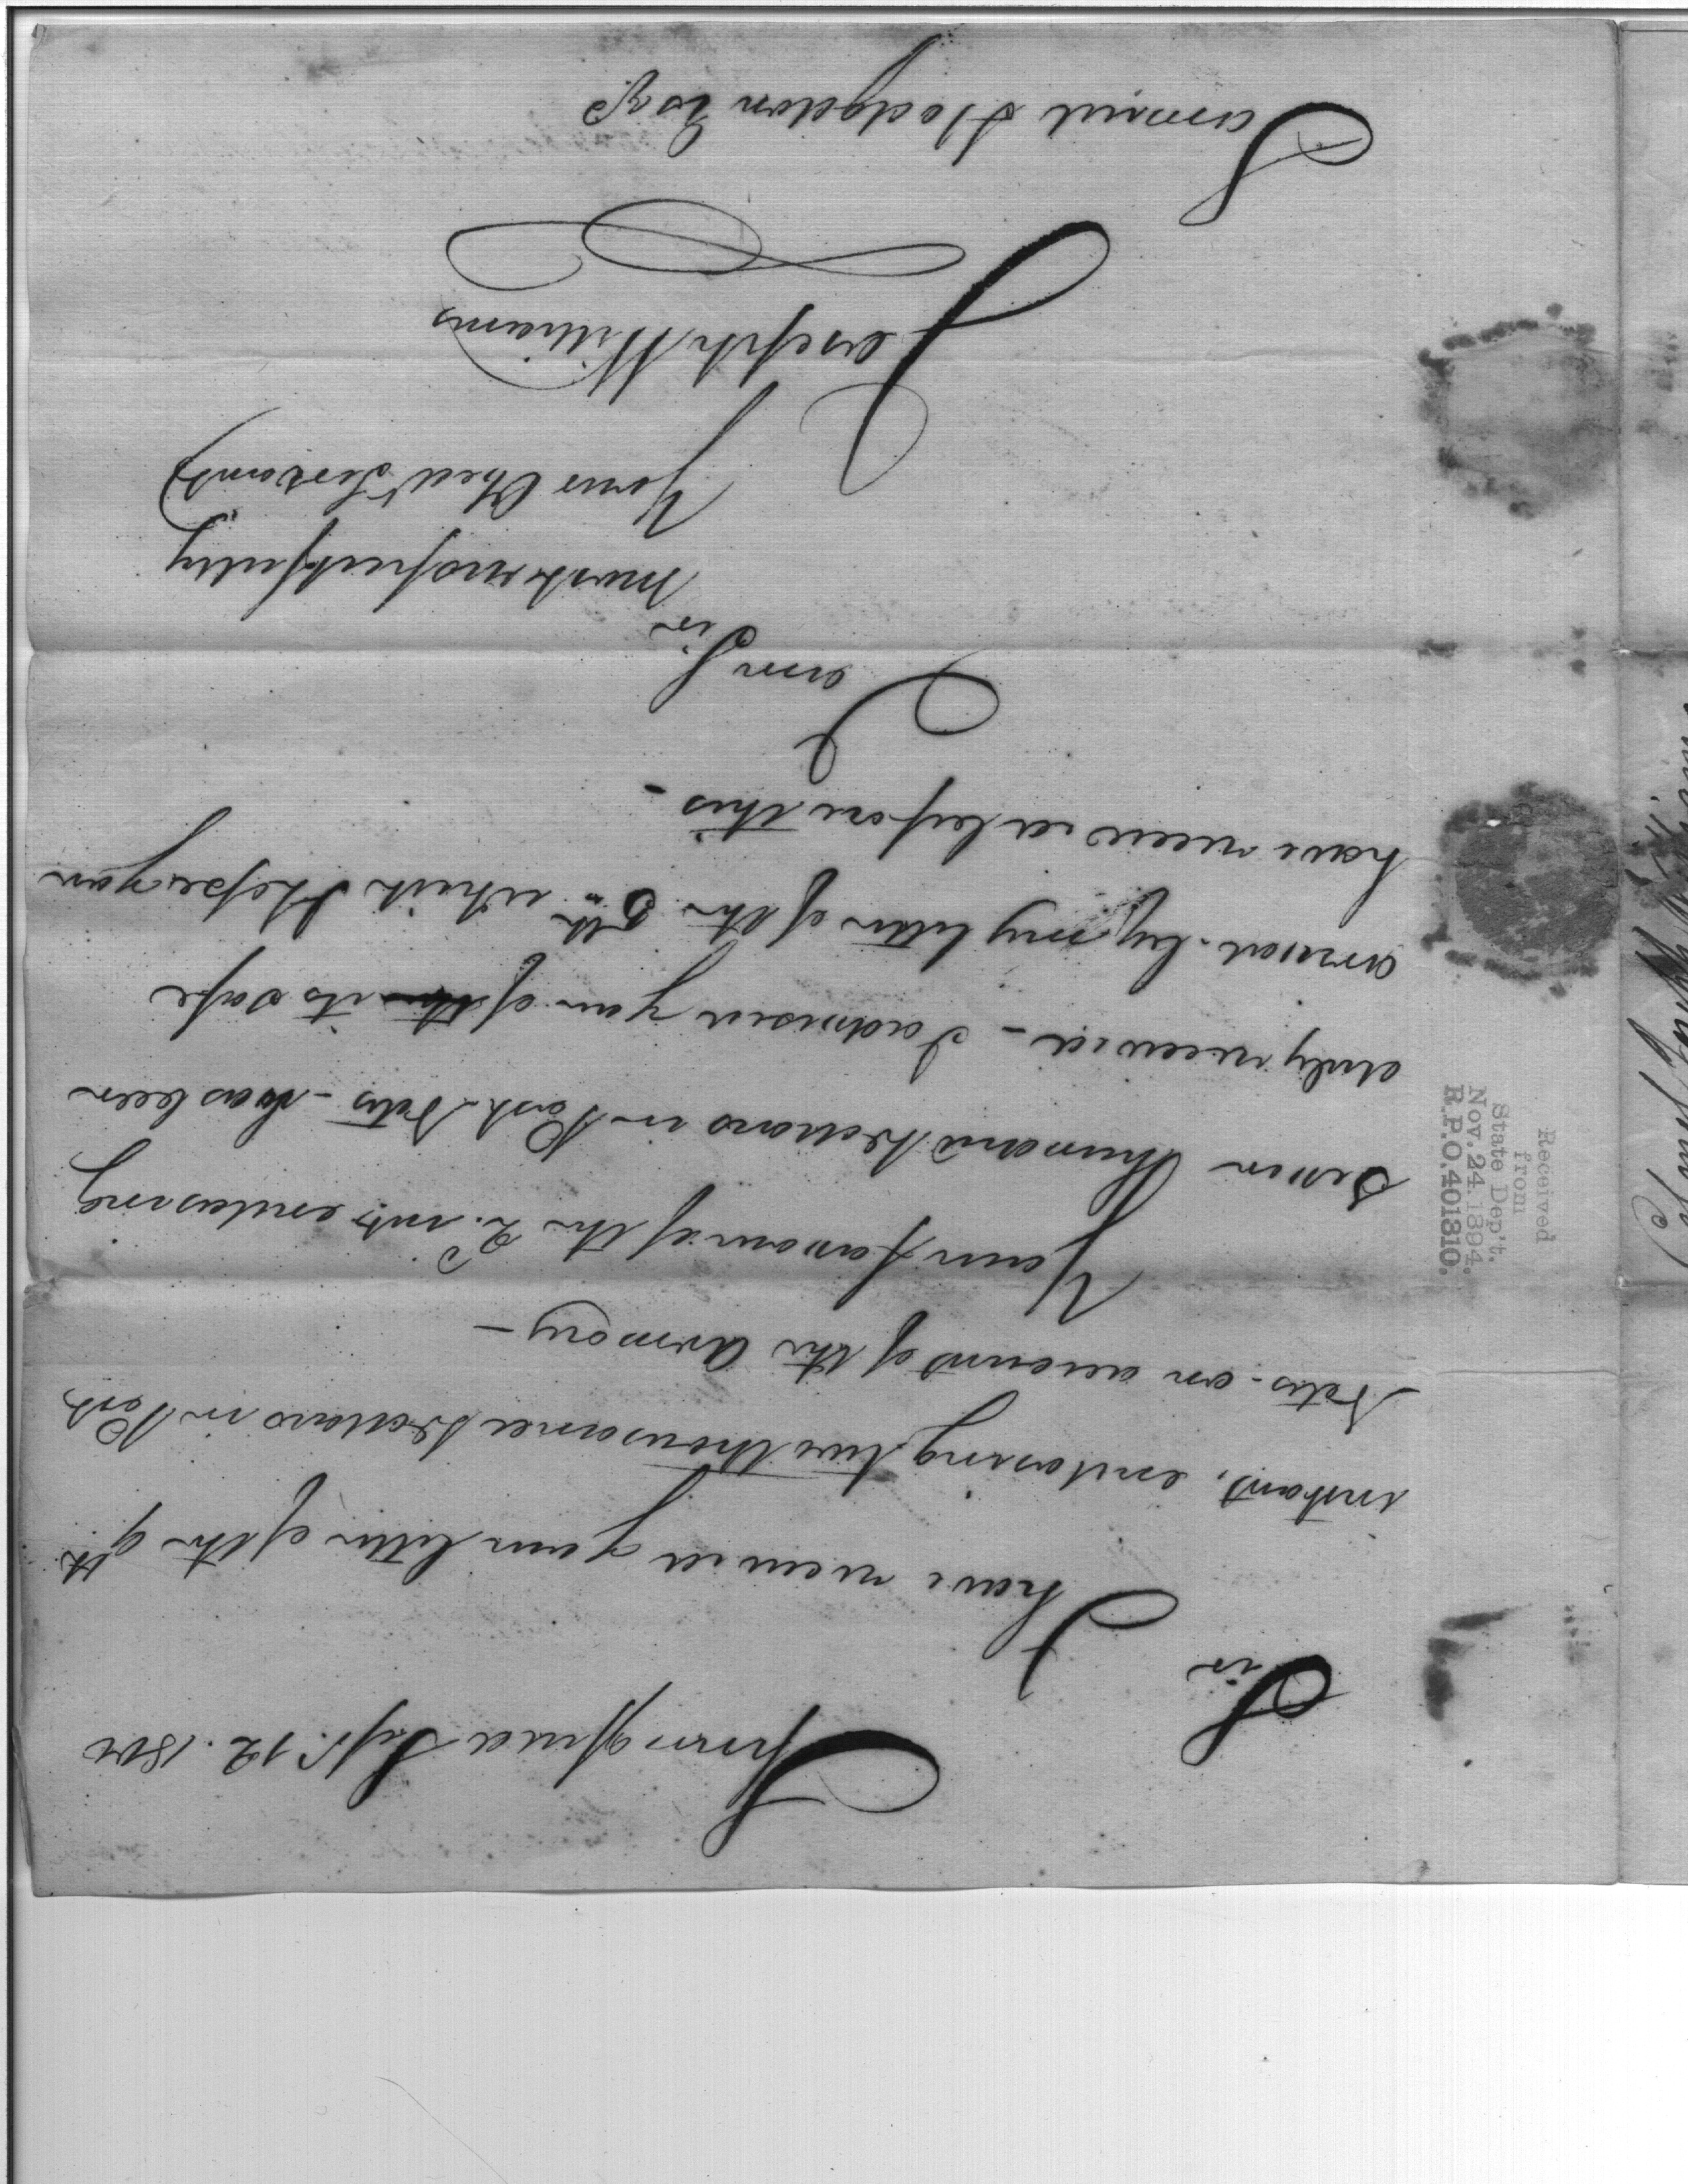 Springfield Sept. 12. 1800
Sir
I have received your letter of the 9th
instant, enclosing two thousand Dollars in Post
Notes on account of the Armory —
Your favour of the 2d. inst. enclosing
Seven Thousand Dollars in Post Notes - has been
duly received - I advised you of its safe
arrival by my letter of the 5th which I hope you
have received before this -
I am Sir
most respectfully
Your Obed Servant
Joseph Williams
Samuel Hodgdon Esqr
Received
from
State Dep't.
Nov. 24 1894.
R.P.O. 401310.